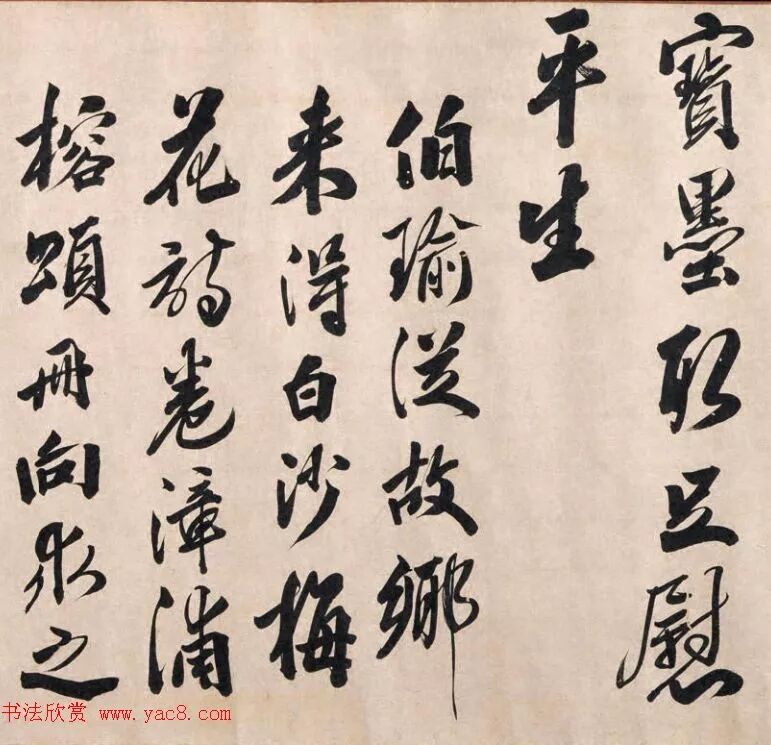 寶墨聊足慰
平生
伯瑜從故鄉
来得白沙梅
花詩卷漳浦
榕頌冊向求之
书法欣赏 www.yac8.com